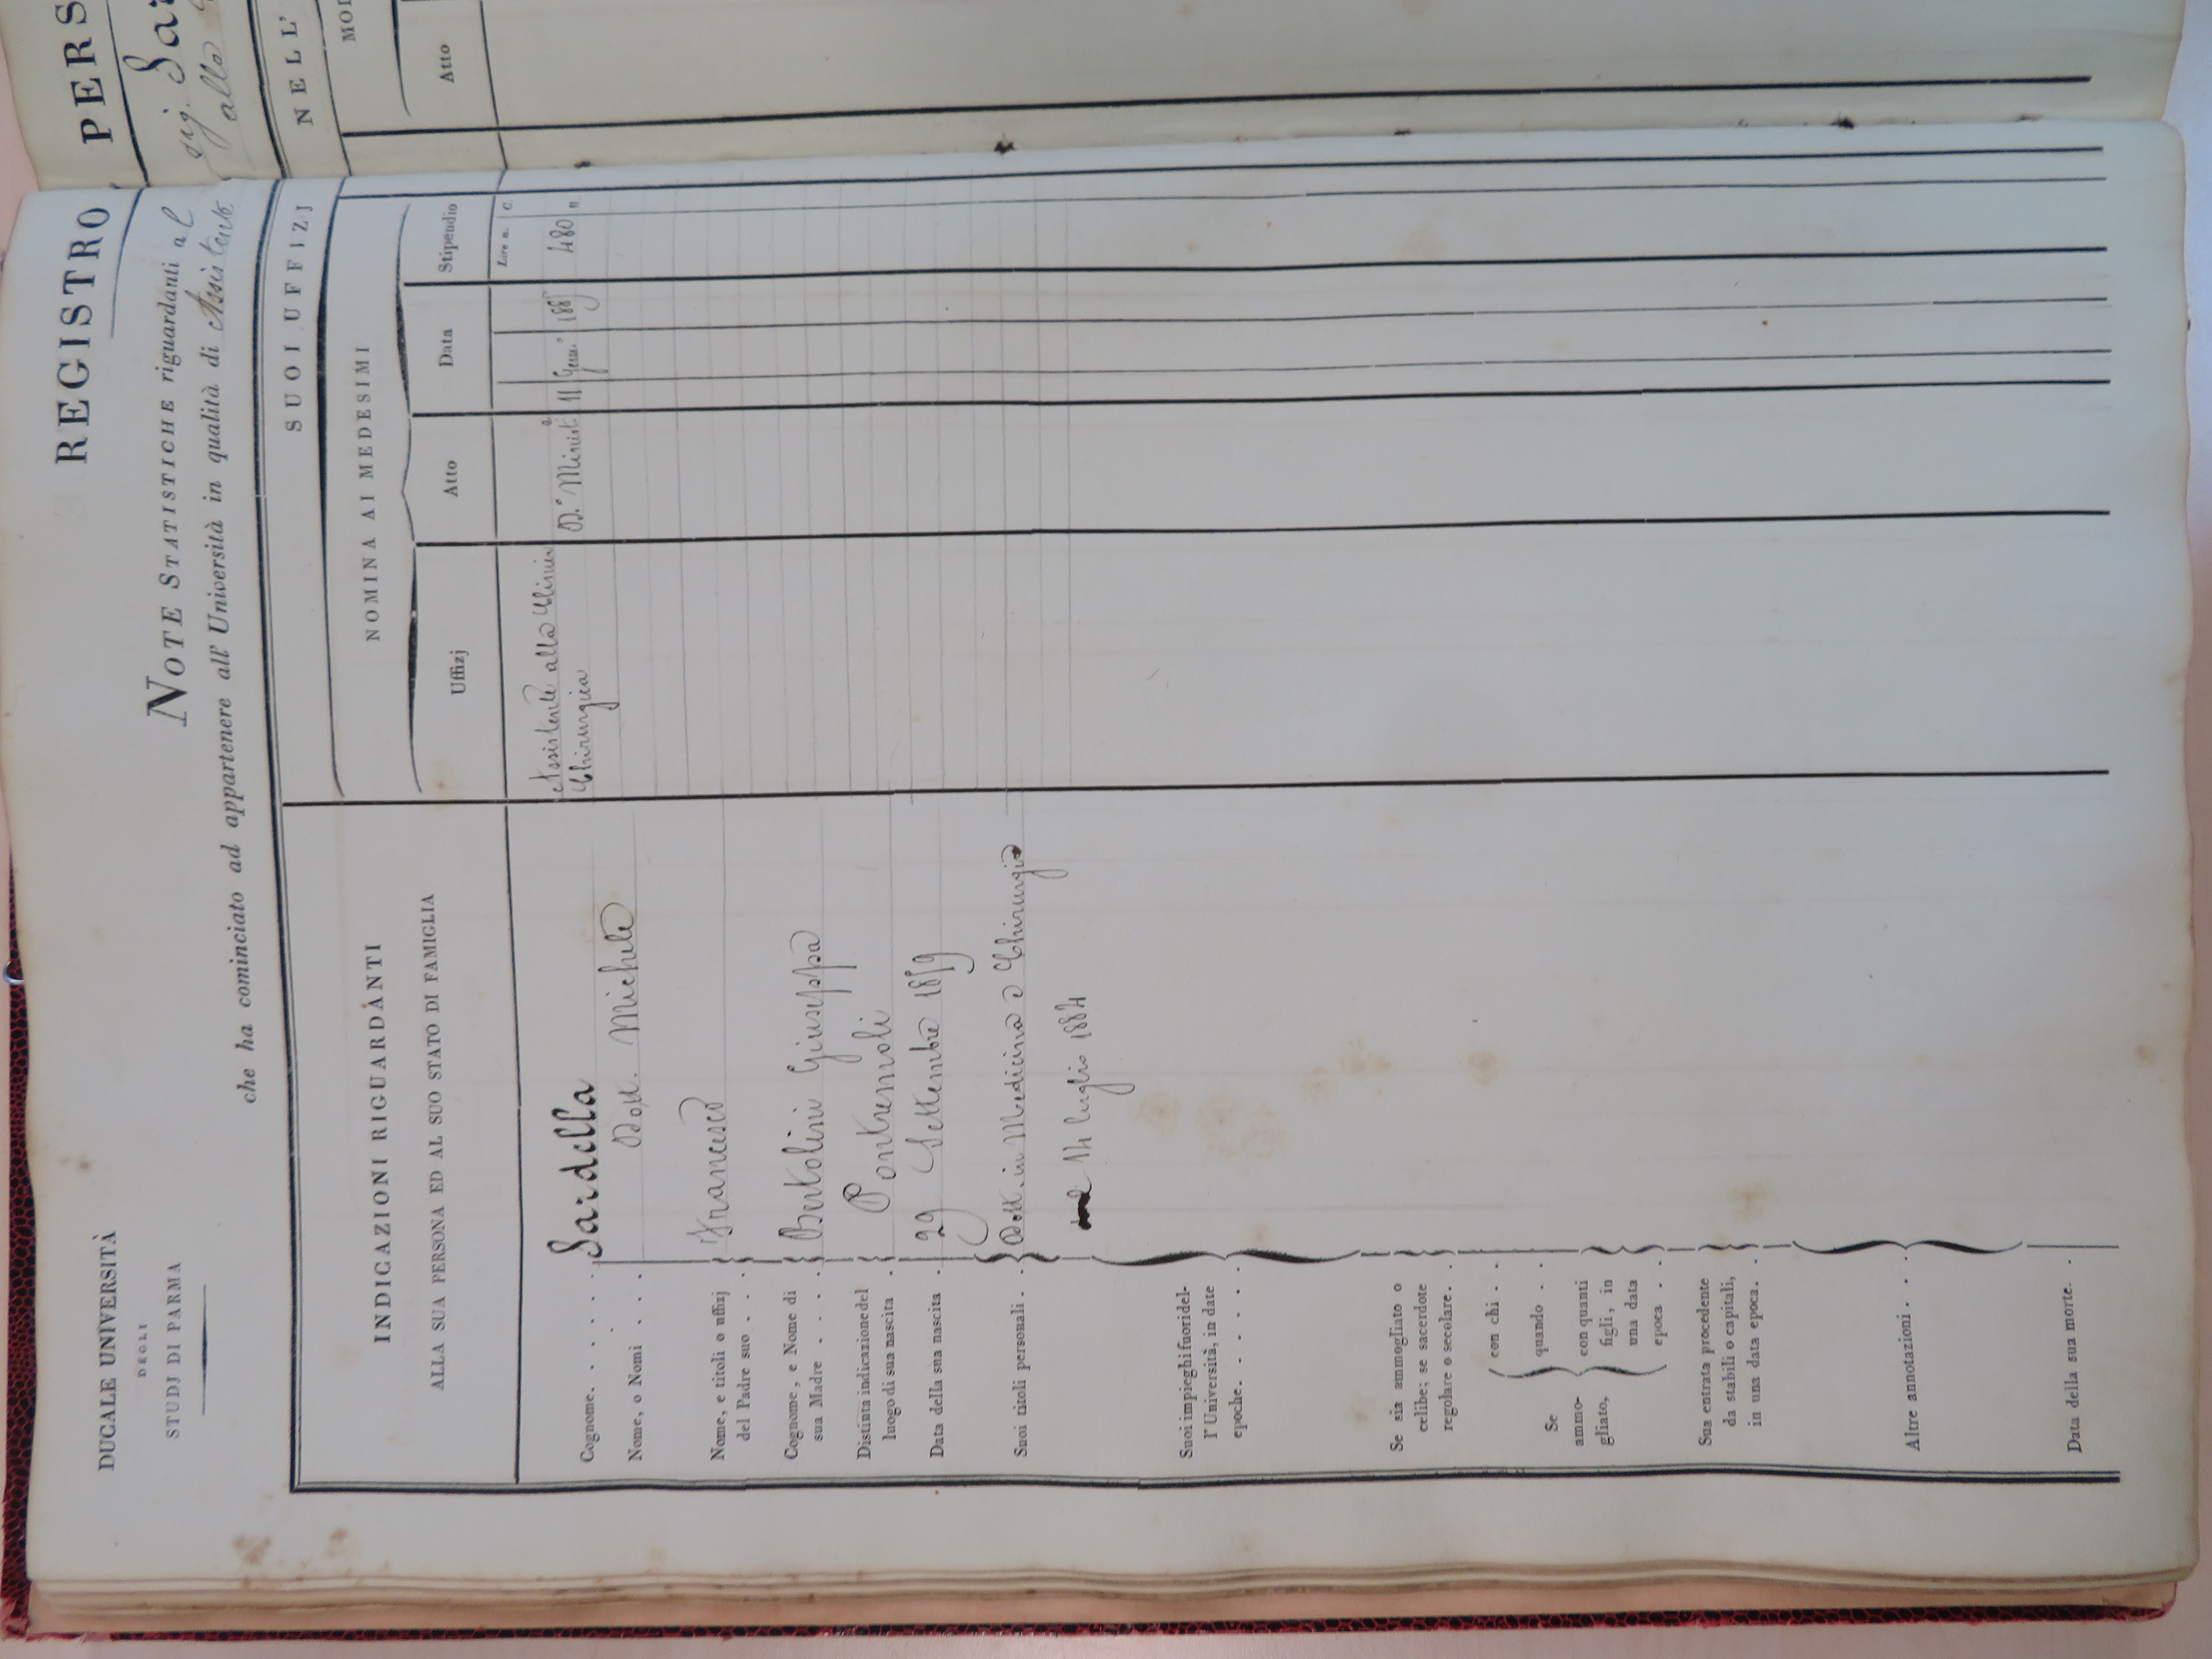 DUCALE UNIVERSITÀ
DEGLI
STUDJ DI PARMA
REGISTRO PERS
NOTE STATISTICHE riguardanti al sig. Sar
che ha cominciato ad appartenere all' Università in qualità di Assistente alla
INDICAZIONI RIGUARDANTI
ALLA SUA PERSONA ED AL SUO STATO DI FAMIGLIA
SUOI UFFIZJ NELL'
NOMINA AI MEDESIMI
MOD
Uffizj
Atto
Data
Stipendio
Atto
Lire n. c.
Cognome. . . . . . Sardella
Nome, o Nomi . . . Dott. Michele
Nome, e titoli o uffizj
del Padre suo . . . Francesco
Cognome, e Nome di
sua Madre . . . . Bertolini Giuseppa
Distinta indicazione del
luogo di sua nascita . Pontremoli
Data della sua nascita . 29 Settembre 1859
Suoi titoli personali . . Dott. in Medicina e Chirurgia
14 Luglio 1884
Suoi impieghi fuori del-
l' Università, in date
epoche. . . . . .
Se sia ammogliato o
celibe; se sacerdote
regolare o secolare. . .
Se
ammo-
gliato,
con chi . .
quando . .
con quanti
figli, in
una data
epoca . .
Sua entrata procedente
da stabili o capitali,
in una data epoca. .
Altre annotazioni . . .
Data della sua morte. .
Assistente alla Clinica
Chirurgica
D.º Minist.e
11 Genn.º 188
480 "